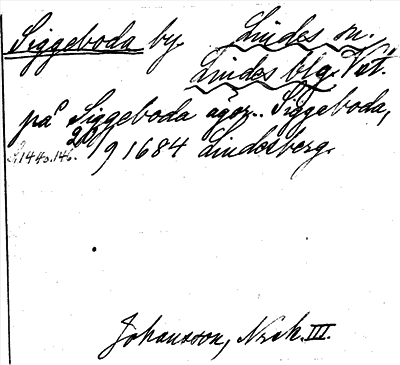 Siggeboda by Lindes sn.
Lindes blg. Vstl.
på Siggeboda ägor. Siggeboda,
20/9 1684 Lindesberg.
Johansson, Nrck. III.